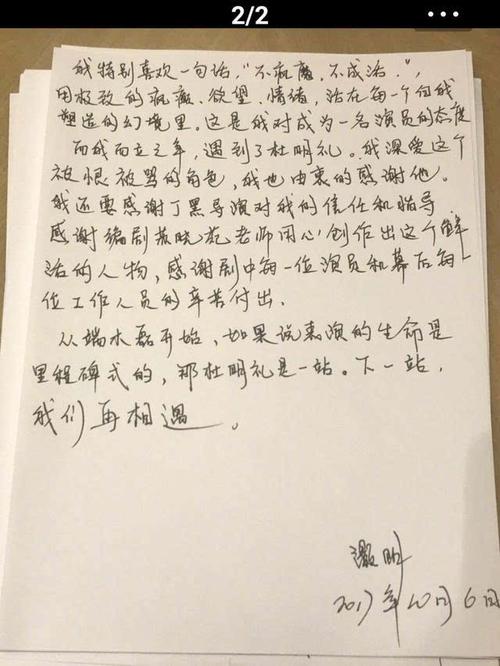 2/2
我特别喜欢一句话，“不疯魔，不成活.”，
用极致的疯癫、欲望、情绪，活在每一个自我
塑造的幻境里。这是我对成为一名演员的态度
而我而立之年，遇到了杜明礼。我深爱这个
被恨被骂的角色，我也由衷的感谢他。
我还要感谢丁黑导演对我的信任和指导
感谢编剧苏晓苑老师用心创作出这个鲜
活的人物，感谢剧中每一位演员和幕后每一
位工作人员的辛苦付出.
从端木磊开始，如果说表演的生命是
里程碑式的，那杜明礼是一站。下一站，
我们再相遇。
明
2017年10月6日